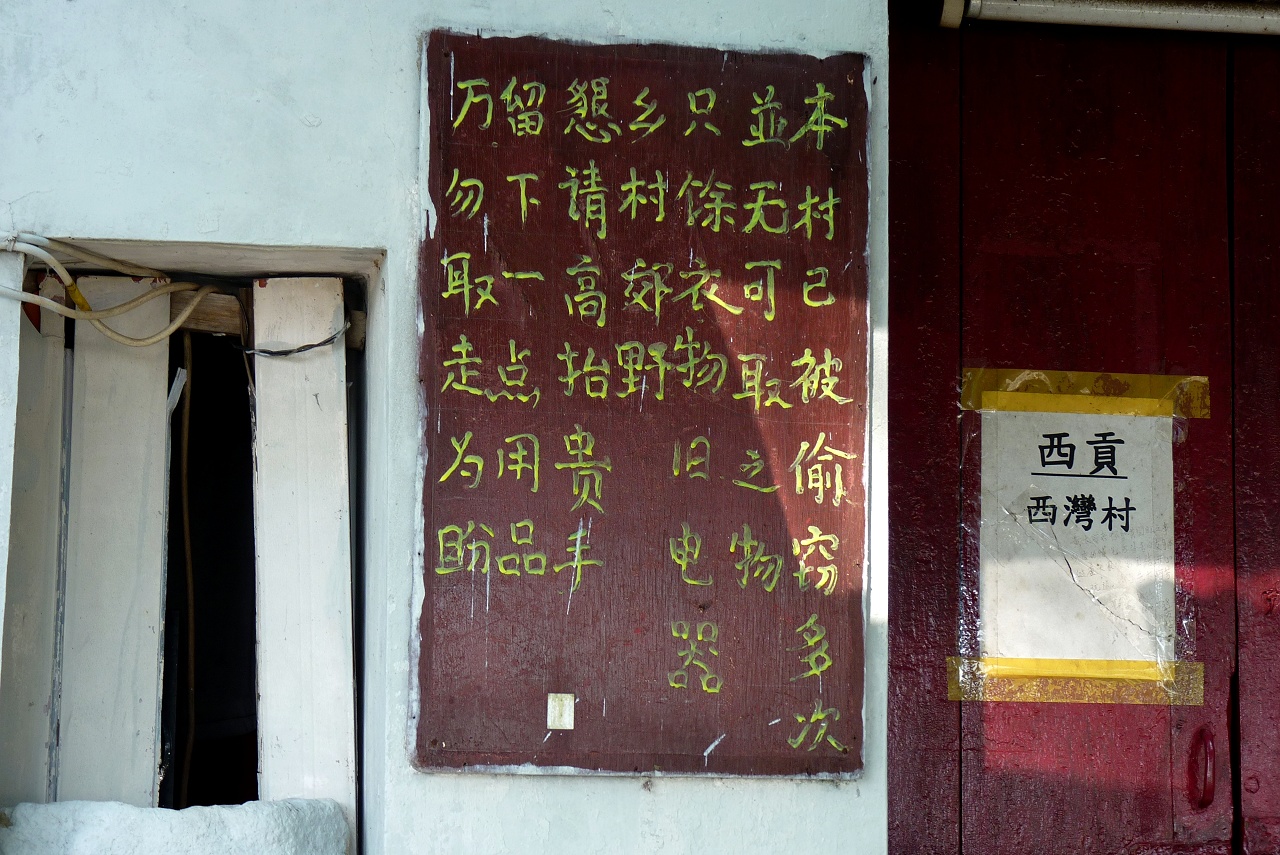 本村已被偷窃多次
並无可取之物
只馀衣物旧电器
乡村郊野
懇请高抬贵手
留下一点用品
万勿取走为盼
西貢
西灣村